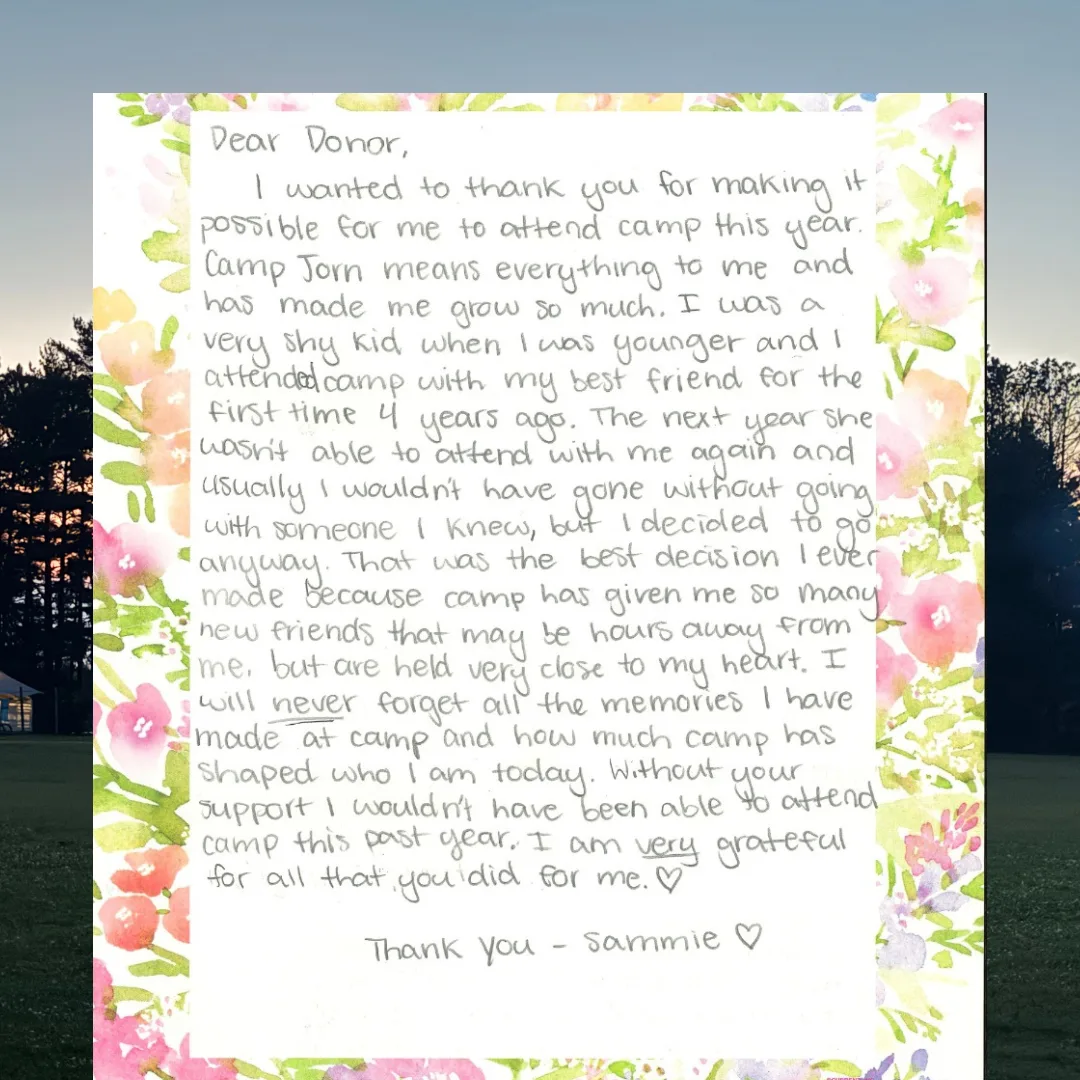 Dear Donor,
I wanted to thank you for making it
possible for me to attend camp this year.
Camp Jorn means everything to me and
has made me grow so much. I was a
very shy kid when I was younger and I
attended camp with my best friend for the
first time 4 years ago. The next year she
wasn't able to attend with me again and
usually I wouldn't have gone without going
with someone I knew, but I decided to go
anyway. That was the best decision I ever
made because camp has given me so many
new friends that may be hours away from
me, but are held very close to my heart. I
will never forget all the memories I have
made at camp and how much camp has
shaped who I am today. Without your
support I wouldn't have been able to attend
camp this past year. I am very grateful
for all that you did for me. ♡
Thank you - Sammie ♡